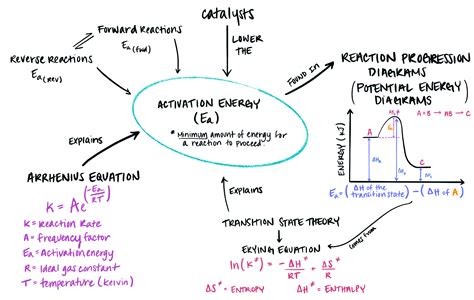 catalysts
LOWER
THE
Forward Reactions
Ea (fwd)
Reverse Reactions
Ea (rev)
ACTIVATION ENERGY
(EA)
* Minimum amount of energy for
a reaction to proceed
FOUND IN
REACTION PROGRESSION
DIAGRAMS
(POTENTIAL ENERGY)
DIAGRAMS
A+B → AB → C
ENERGY (KJ)
A
C
Ea = (ΔH of the transition state) - (ΔH of A)
comes from
Explains
ARRHENIUS EQUATION
K = Ae^(-Ea/RT)
K = Reaction Rate
A = frequency factor
Ea = Activation energy
R = Ideal gas constant
T = temperature (kelvin)
Explains
TRANSITION STATE THEORY
EKYING EQUATION
ln(K‡) = -ΔH‡/RT + ΔS‡/R
ΔS‡ = ENTROPY ΔH‡ = ENTHALPY